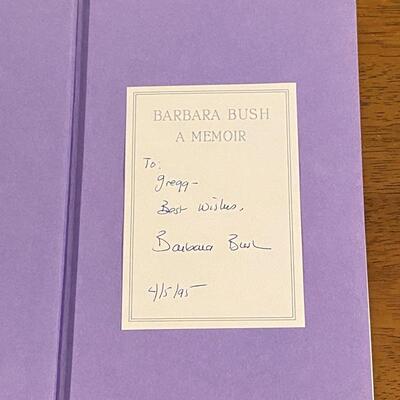 BARBARA BUSH
A MEMOIR
To:
Gregg-
Best Wishes,
Barbara Bush
4/5/95